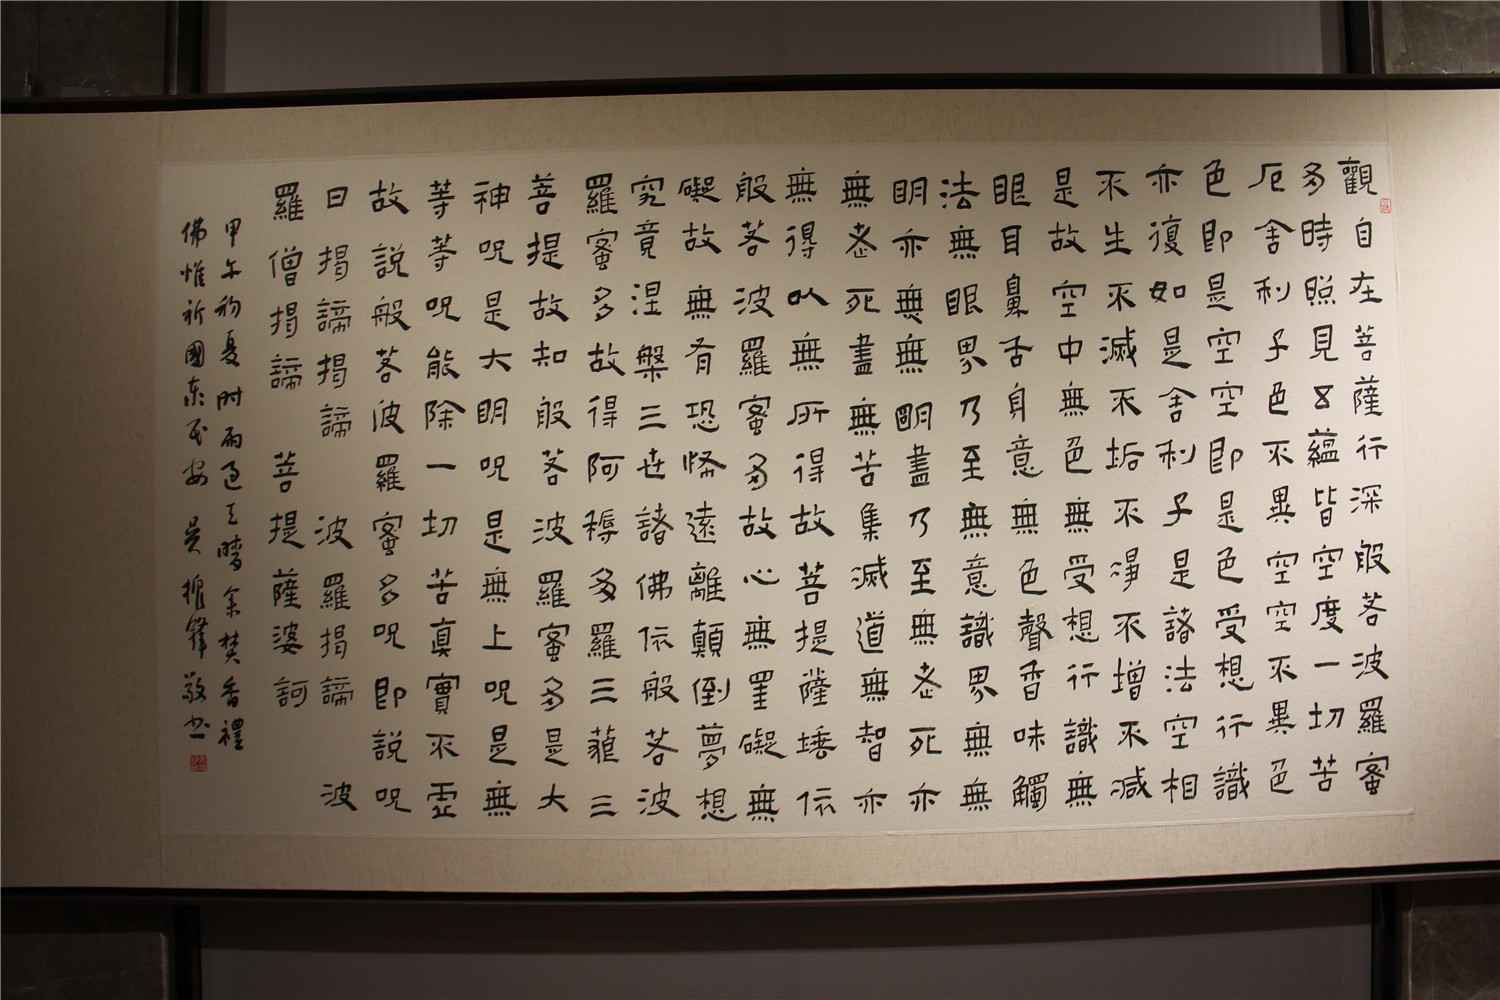 觀自在菩薩行深般若波羅蜜
多時照見五蘊皆空度一切苦
厄舍利子色不異空空不異色
色即是空空即是色受想行識
亦復如是舍利子是諸法空相
不生不滅不垢不淨不增不減
是故空中無色無受想行識無
眼耳鼻舌身意無色聲香味觸
法無眼界乃至無意識界無無
明亦無無明盡乃至無老死亦
無老死盡無苦集滅道無智亦
無得以無所得故菩提薩埵依
般若波羅蜜多故心無罣礙無
礙故無有恐怖遠離顛倒夢想
究竟涅槃三世諸佛依般若波
羅蜜多故得阿耨多羅三藐三
菩提故知般若波羅蜜多是大
神呪是大明呪是無上呪是無
等等呪能除一切苦真實不虛
故説般若波羅蜜多呪即説呪
曰揭諦揭諦 波羅揭諦 波
羅僧揭諦 菩提薩婆訶
甲午初夏時雨過天晴余焚香禮
佛惟祈國泰民安 吴振鋒敬書